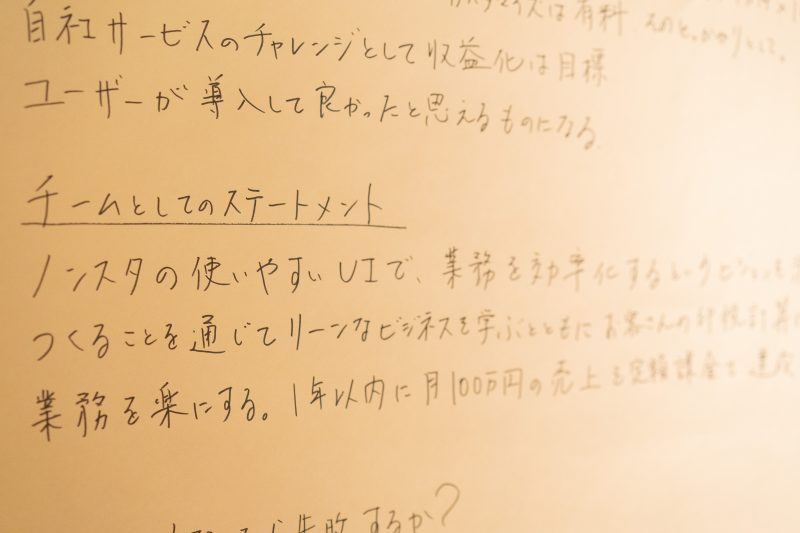 カスタマイズは有料
自社サービスのチャレンジとして収益化は目標
ユーザーが導入して良かったと思えるものになる
チームとしてのステートメント
ノンスタの使いやすいUIで、業務を効率化する
つくることを通じてリーンなビジネスを学ぶとともにお客さんの
業務を楽にする。1年以内に月100万円の売上を
失敗するか?